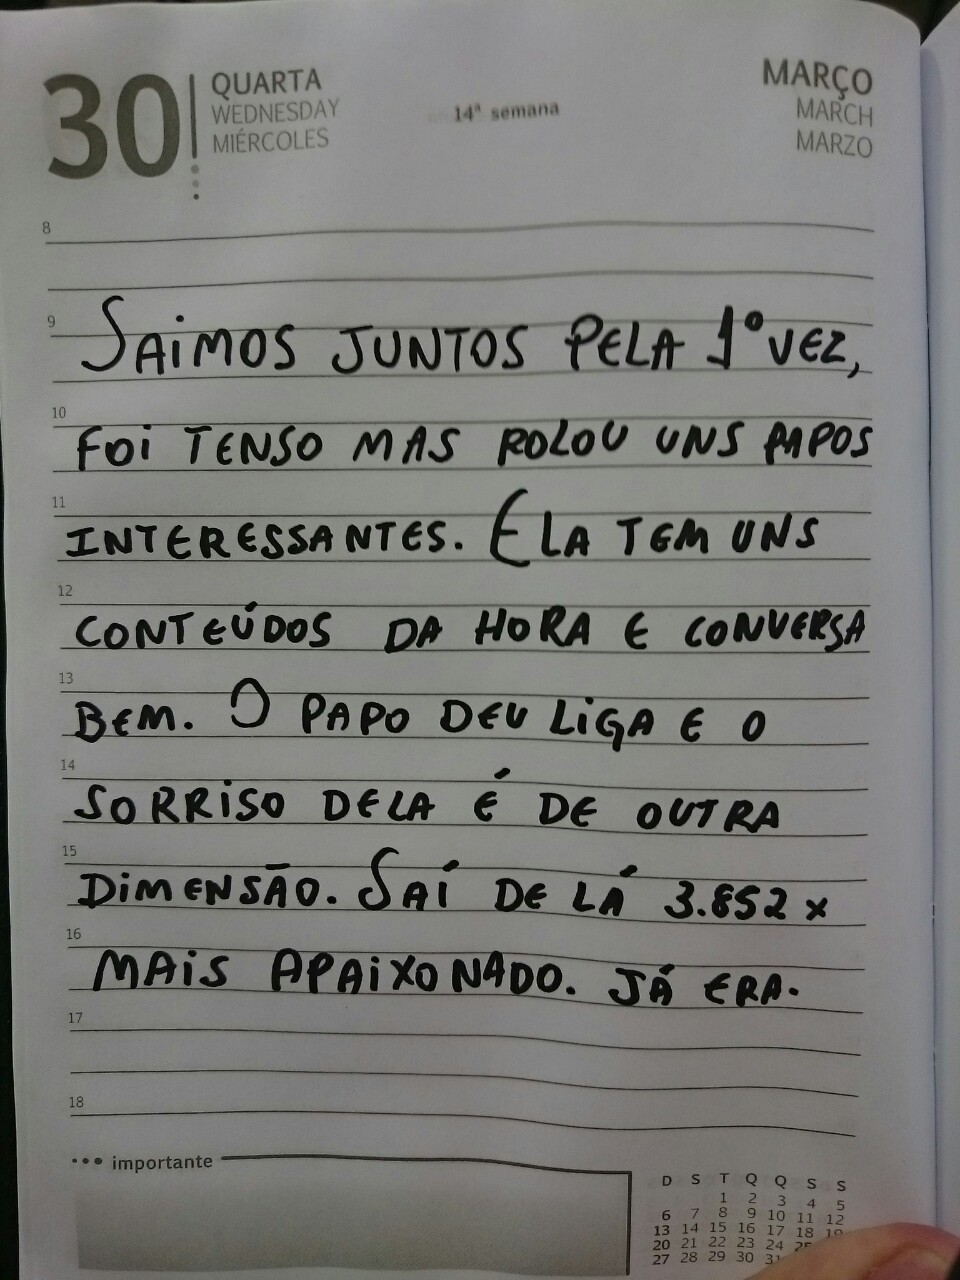 30 QUARTA MARÇO
WEDNESDAY 14ª semana MARCH
MIÉRCOLES MARZO
8
9
SAiMOS JUNTOS PELA 1º VEZ,
10
FOi TENSO MAS ROLOU UNS PAPOS
11
INTERESSANTES. ELA TEM UNS
12
CONTEÚDOS DA HORA E CONVERSA
13
BEM. O PAPO DEU LiGA E O
14
SORRiSO DELA É DE OUTRA
15
DiMENSÃO. SAÍ DE LÁ 3.852 x
16
MAiS APAiXONADO. JÁ ERA.
17
18
importante
D S T Q Q S S
1 2 3 4 5
6 7 8 9 10 11 12
13 14 15 16 17 18 19
20 21 22 23 24
27 28 29 30